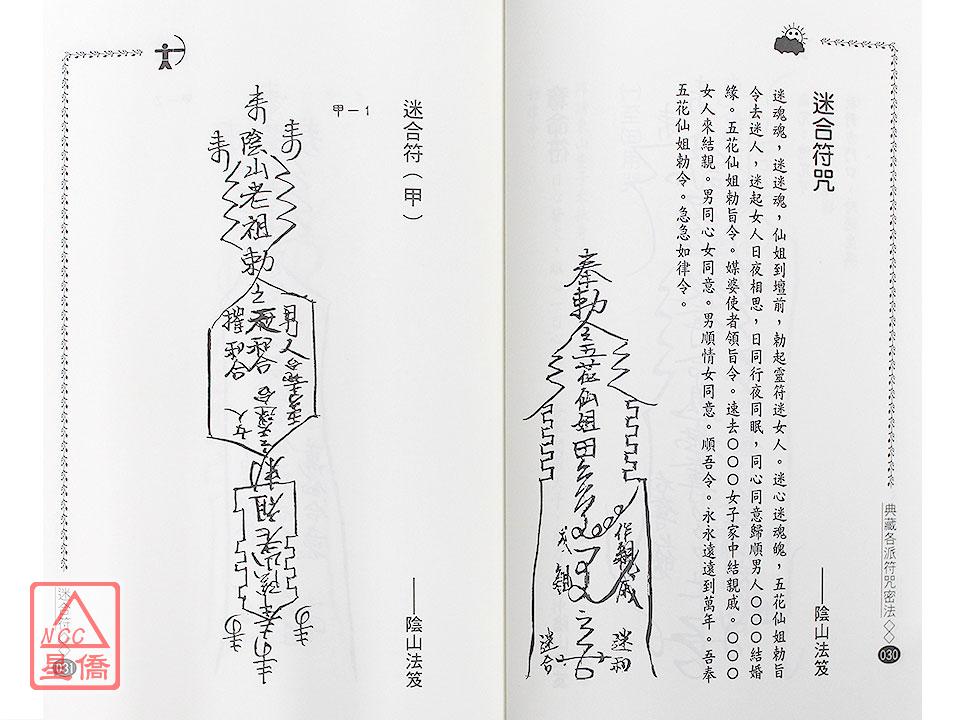 迷合符咒
——陰山法笈
迷魂魂，迷迷魂，仙姐到壇前，勅起靈符迷女人。迷心迷魂魄，五花仙姐勅旨
令去迷人，迷起女人日夜相思，日同行夜同眠，同心同意歸順男人〇〇〇結婚
緣。五花仙姐勅旨令。媒婆使者領旨令。速去〇〇〇女子家中結親戚。〇〇〇
女人來結親。男同心女同意。男順情女同意。順吾令。永永遠遠到萬年。吾奉
五花仙姐勅令。急急如律令。
奉勅令五花仙姐
作親戚
迷合
典藏各派符咒密法◇◇
030
迷合符（甲）
——陰山法笈
甲－1
陰山老祖勅令
女人
迷合符◇◇
031
NCC
星僑